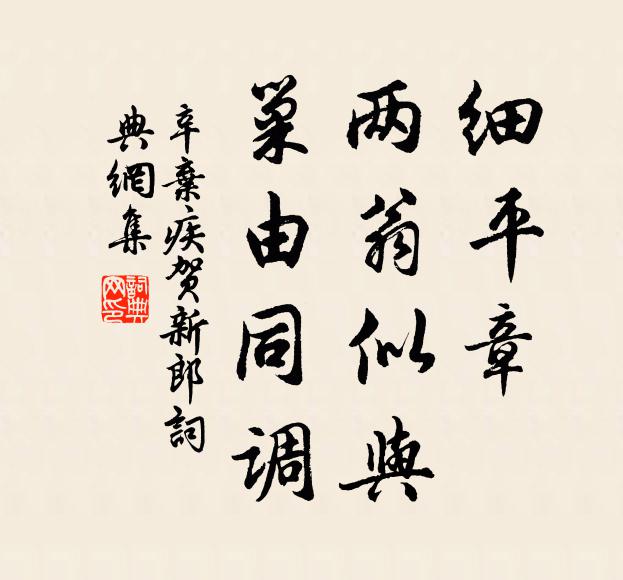 细平章
两翁似與
巢由同调
辛棄疾賀新郎詞
典網集
詞典
网印